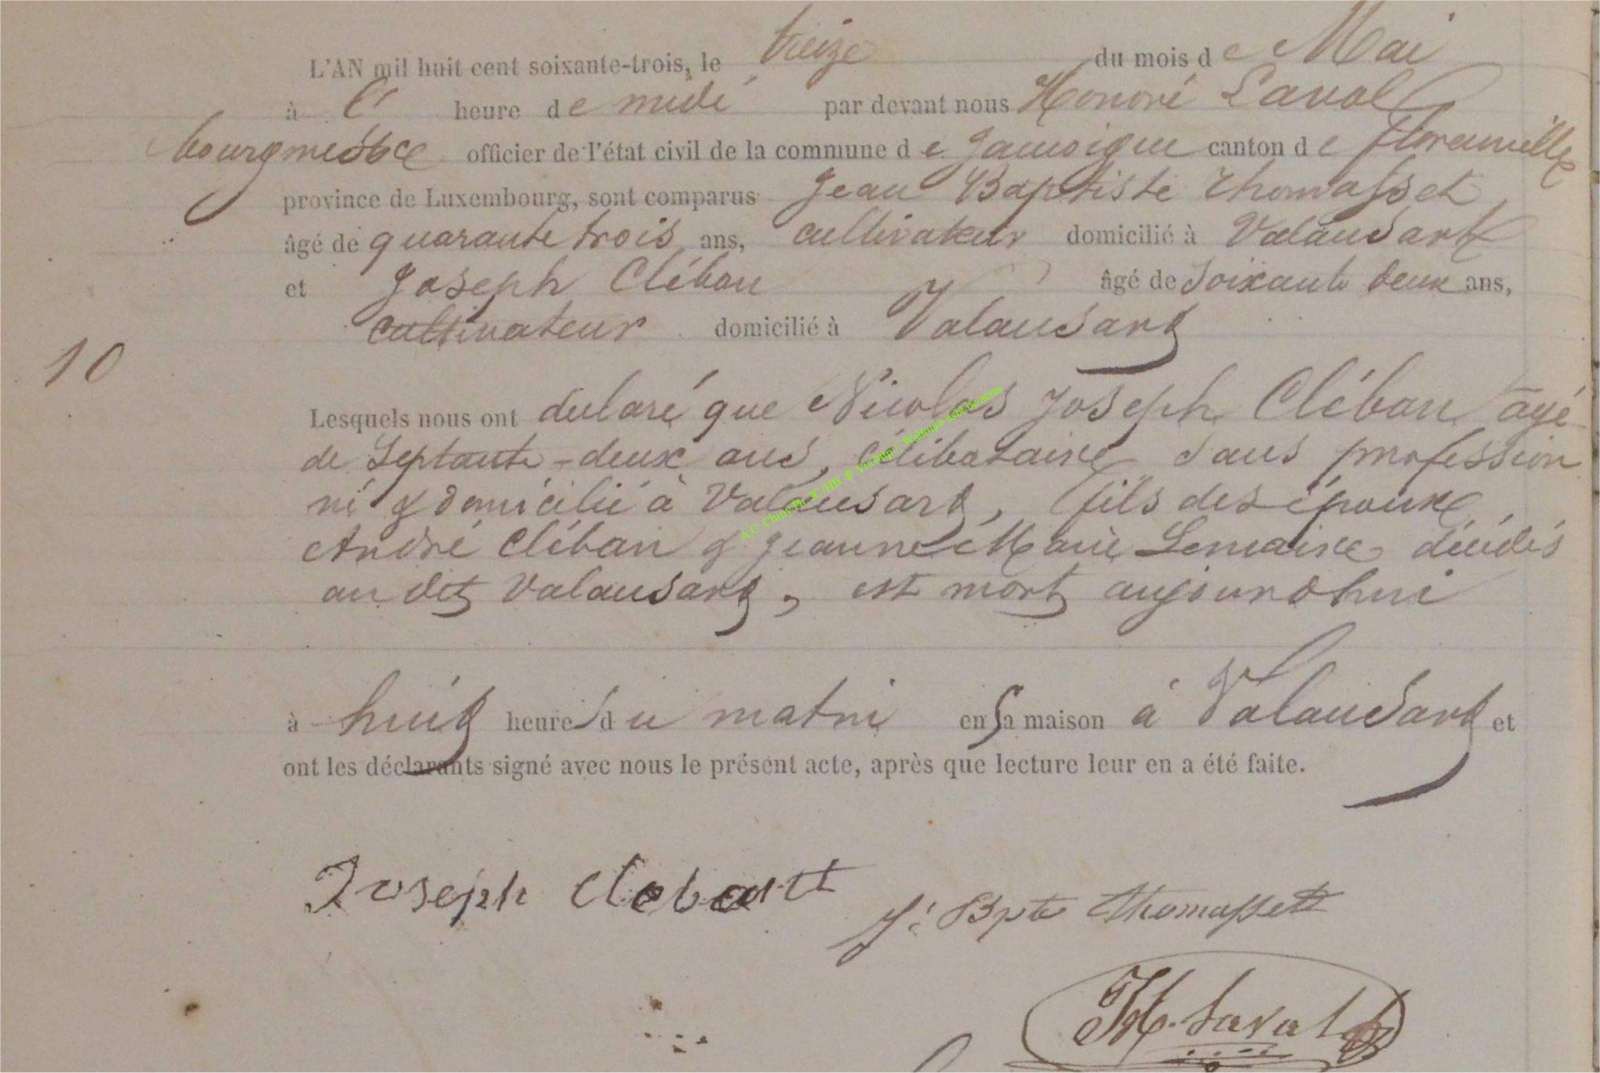 L'AN mil huit cent soixante-trois, le treize du mois de Mai
à l' heure de midi par devant nous Honoré Laval
bourgmestre officier de l'état civil de la commune de Jamoigne canton de florenville
province de Luxembourg, sont comparus Jean Baptiste Thomasset
âgé de quarante trois ans, cultivateur domicilié à Valansart
et Joseph Cléban âgé de soixante deux ans,
cultivateur domicilié à Valansart
10
Lesquels nous ont declaré que Nicolas Joseph Cléban agé
de Septante-deux ans, célibataire sans profession
né & domicilié à Valansart, fils des époux
André Cléban & Jeanne Marie Lemaire décédés
au dit Valansart, est mort aujourdhui
à huit heures du matin en sa maison à Valansart et
ont les déclarants signé avec nous le présent acte, après que lecture leur en a été faite.
Joseph Clebant
J. Bpte Thomassett
H. Laval